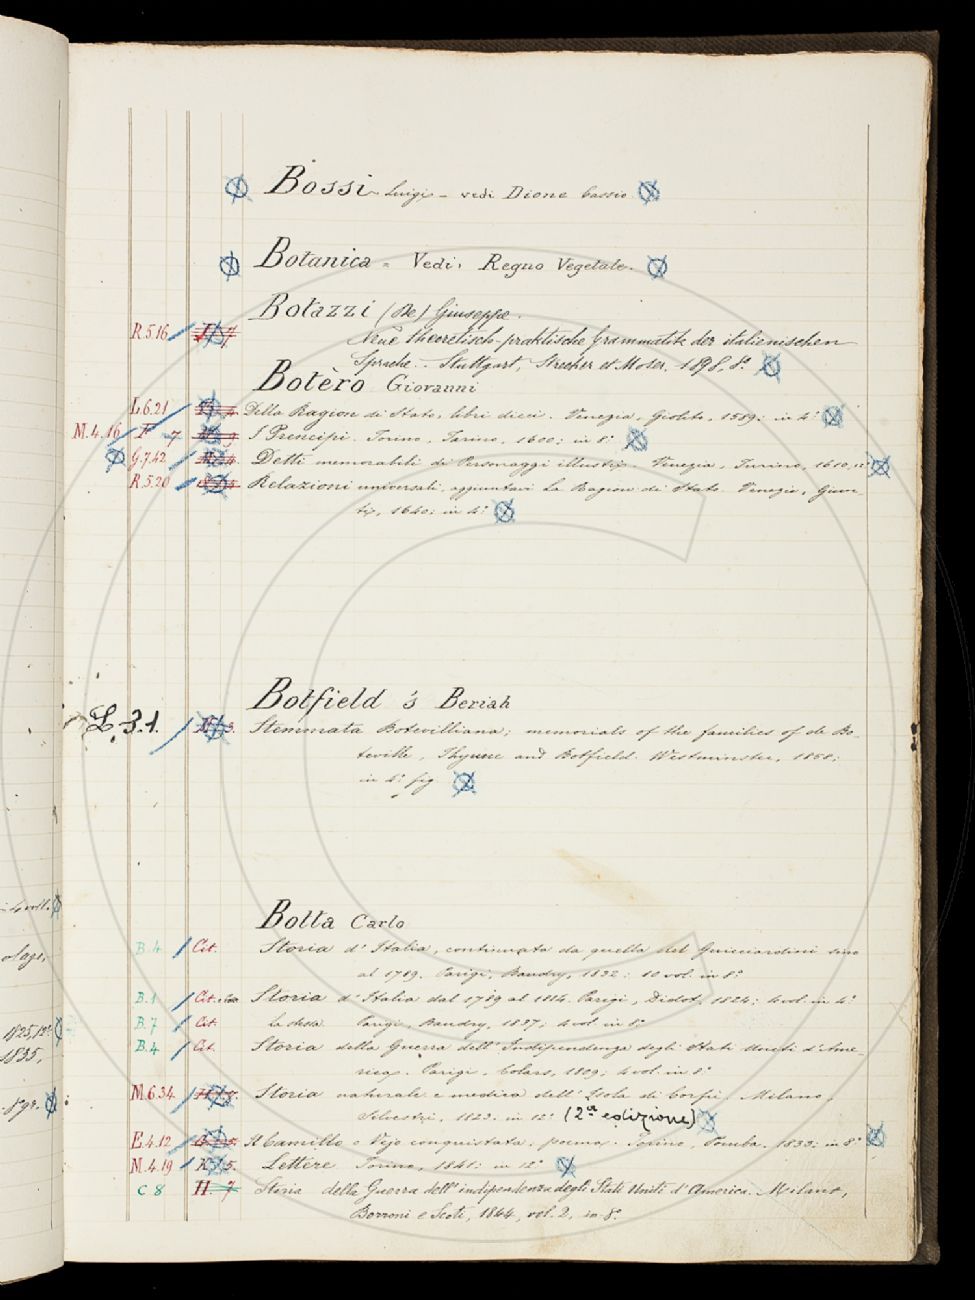 Bossi - Luigi - vedi Dione Cassio
Botanica = Vedi: Regno Vegetale.
Botazzi (De) Giuseppe.
R.5.16 Neue theoretisch-praktische Grammatik der italienischen
Sprache. - Stuttgart, Strecker et Moser, 1898, 8°.
Botèro Giovanni
L.6.21 Della Ragion di Stato, libri dieci. Venezia, Gioliti, 1589; in 4°
M.4.16 F 7 I Prencipi. Torino, Tarino, 1600; in 8°
G.7.42 Detti memorabili di Personaggi illustri. Venezia, 1610, in
R.5.20 Relazioni universali, aggiuntavi la Ragion di Stato. Venezia, Giun-
ti, 1640; in 4°
Botfield 's Beriah
L.3.1. Stemmata Botevilliana; memorials of the families of de Bo-
teville, Thynne and Botfield. Westminster, 1858;
in 4° fig
Botta Carlo
B.4 Cit. Storia d'Italia, continuata da quella del Guicciardini sino
al 1789. Parigi, Baudry, 1832: 10 vol. in 8°
B.1 Cit. Storia d'Italia dal 1789 al 1814. Parigi, Didot, 1824; 4 vol. in 4°
B.7 Cit. La stessa. Parigi, Baudry, 1837; 4 vol. in 8°
B.4 Cit. Storia della Guerra dell'Indipendenza degli Stati Uniti d'Ame-
rica. Parigi, Colas, 1809; 4 vol. in 8°
M.6.34 Storia naturale e medica dell'Isola di Corfù. Milano,
Silvestri, 1823. in 12° (2ª edizione)
E.4.12 Il Camillo o Vejo conquistata, poema. Torino, Pomba, 1833; in 8°
M.4.19 K 5. Lettere Torino, 1841; in 12°
C 8 H 7 Storia della Guerra dell'indipendenza degli Stati Uniti d'America. Milano,
Borroni e Scotti, 1844, vol. 2, in 8°.
4 vol.
1825, 12°.
1835,